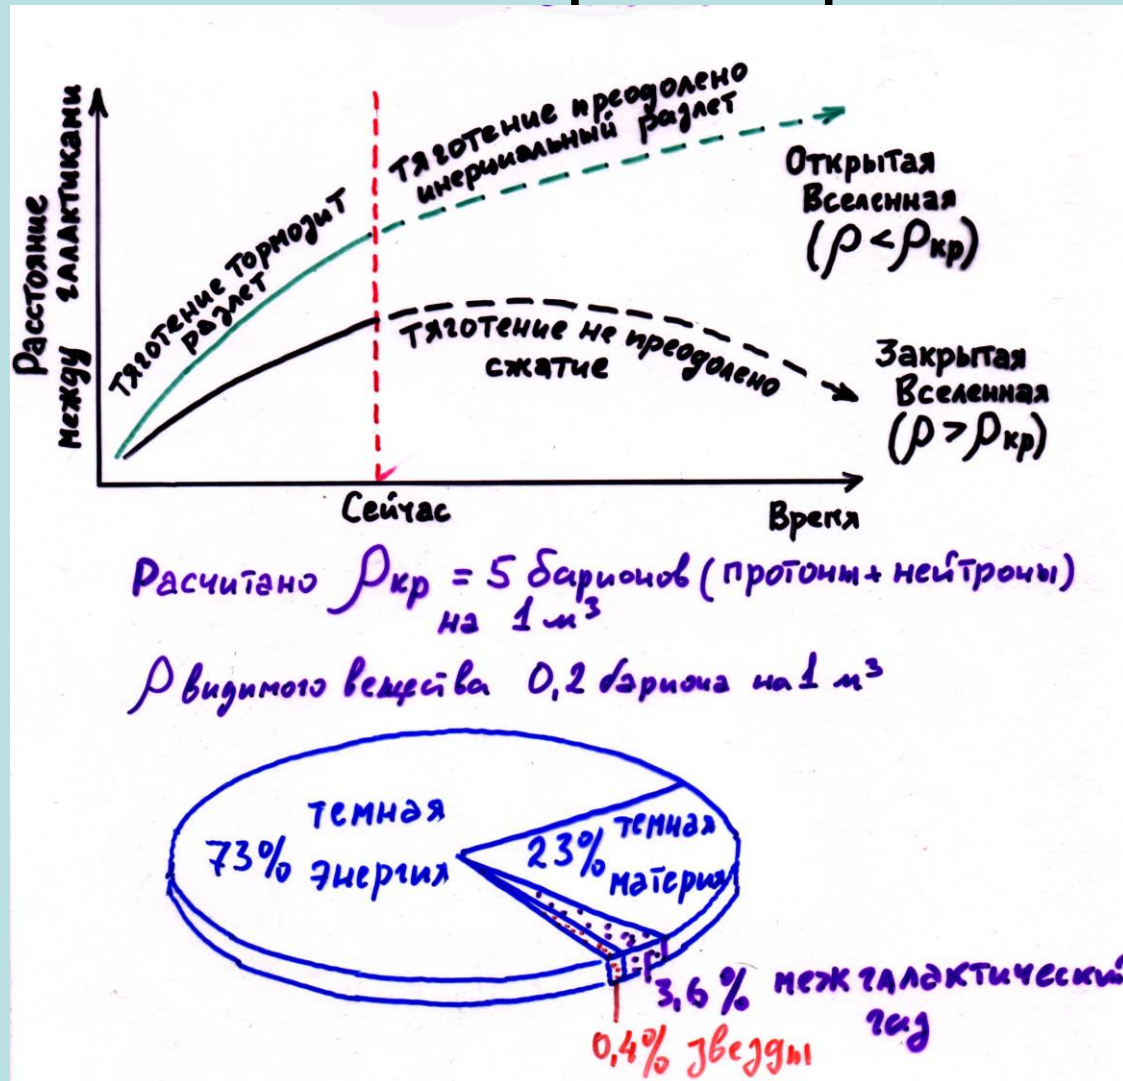 Расстояние
между галактиками
Тяготение тормозит
разлет
Тяготение преодолено
инерциальный разлет
Открытая
Вселенная
(ρ < ρкр)
Тяготение не преодолено
сжатие
Закрытая
Вселенная
(ρ > ρкр)
Сейчас
Время
Расчитано ρкр = 5 барионов (протоны + нейтроны)
на 1 м³
ρ видимого вещества 0,2 бариона на 1 м³
темная
73% энергия
23% темная
материя
3,6% межгалактический
газ
0,4% звезды